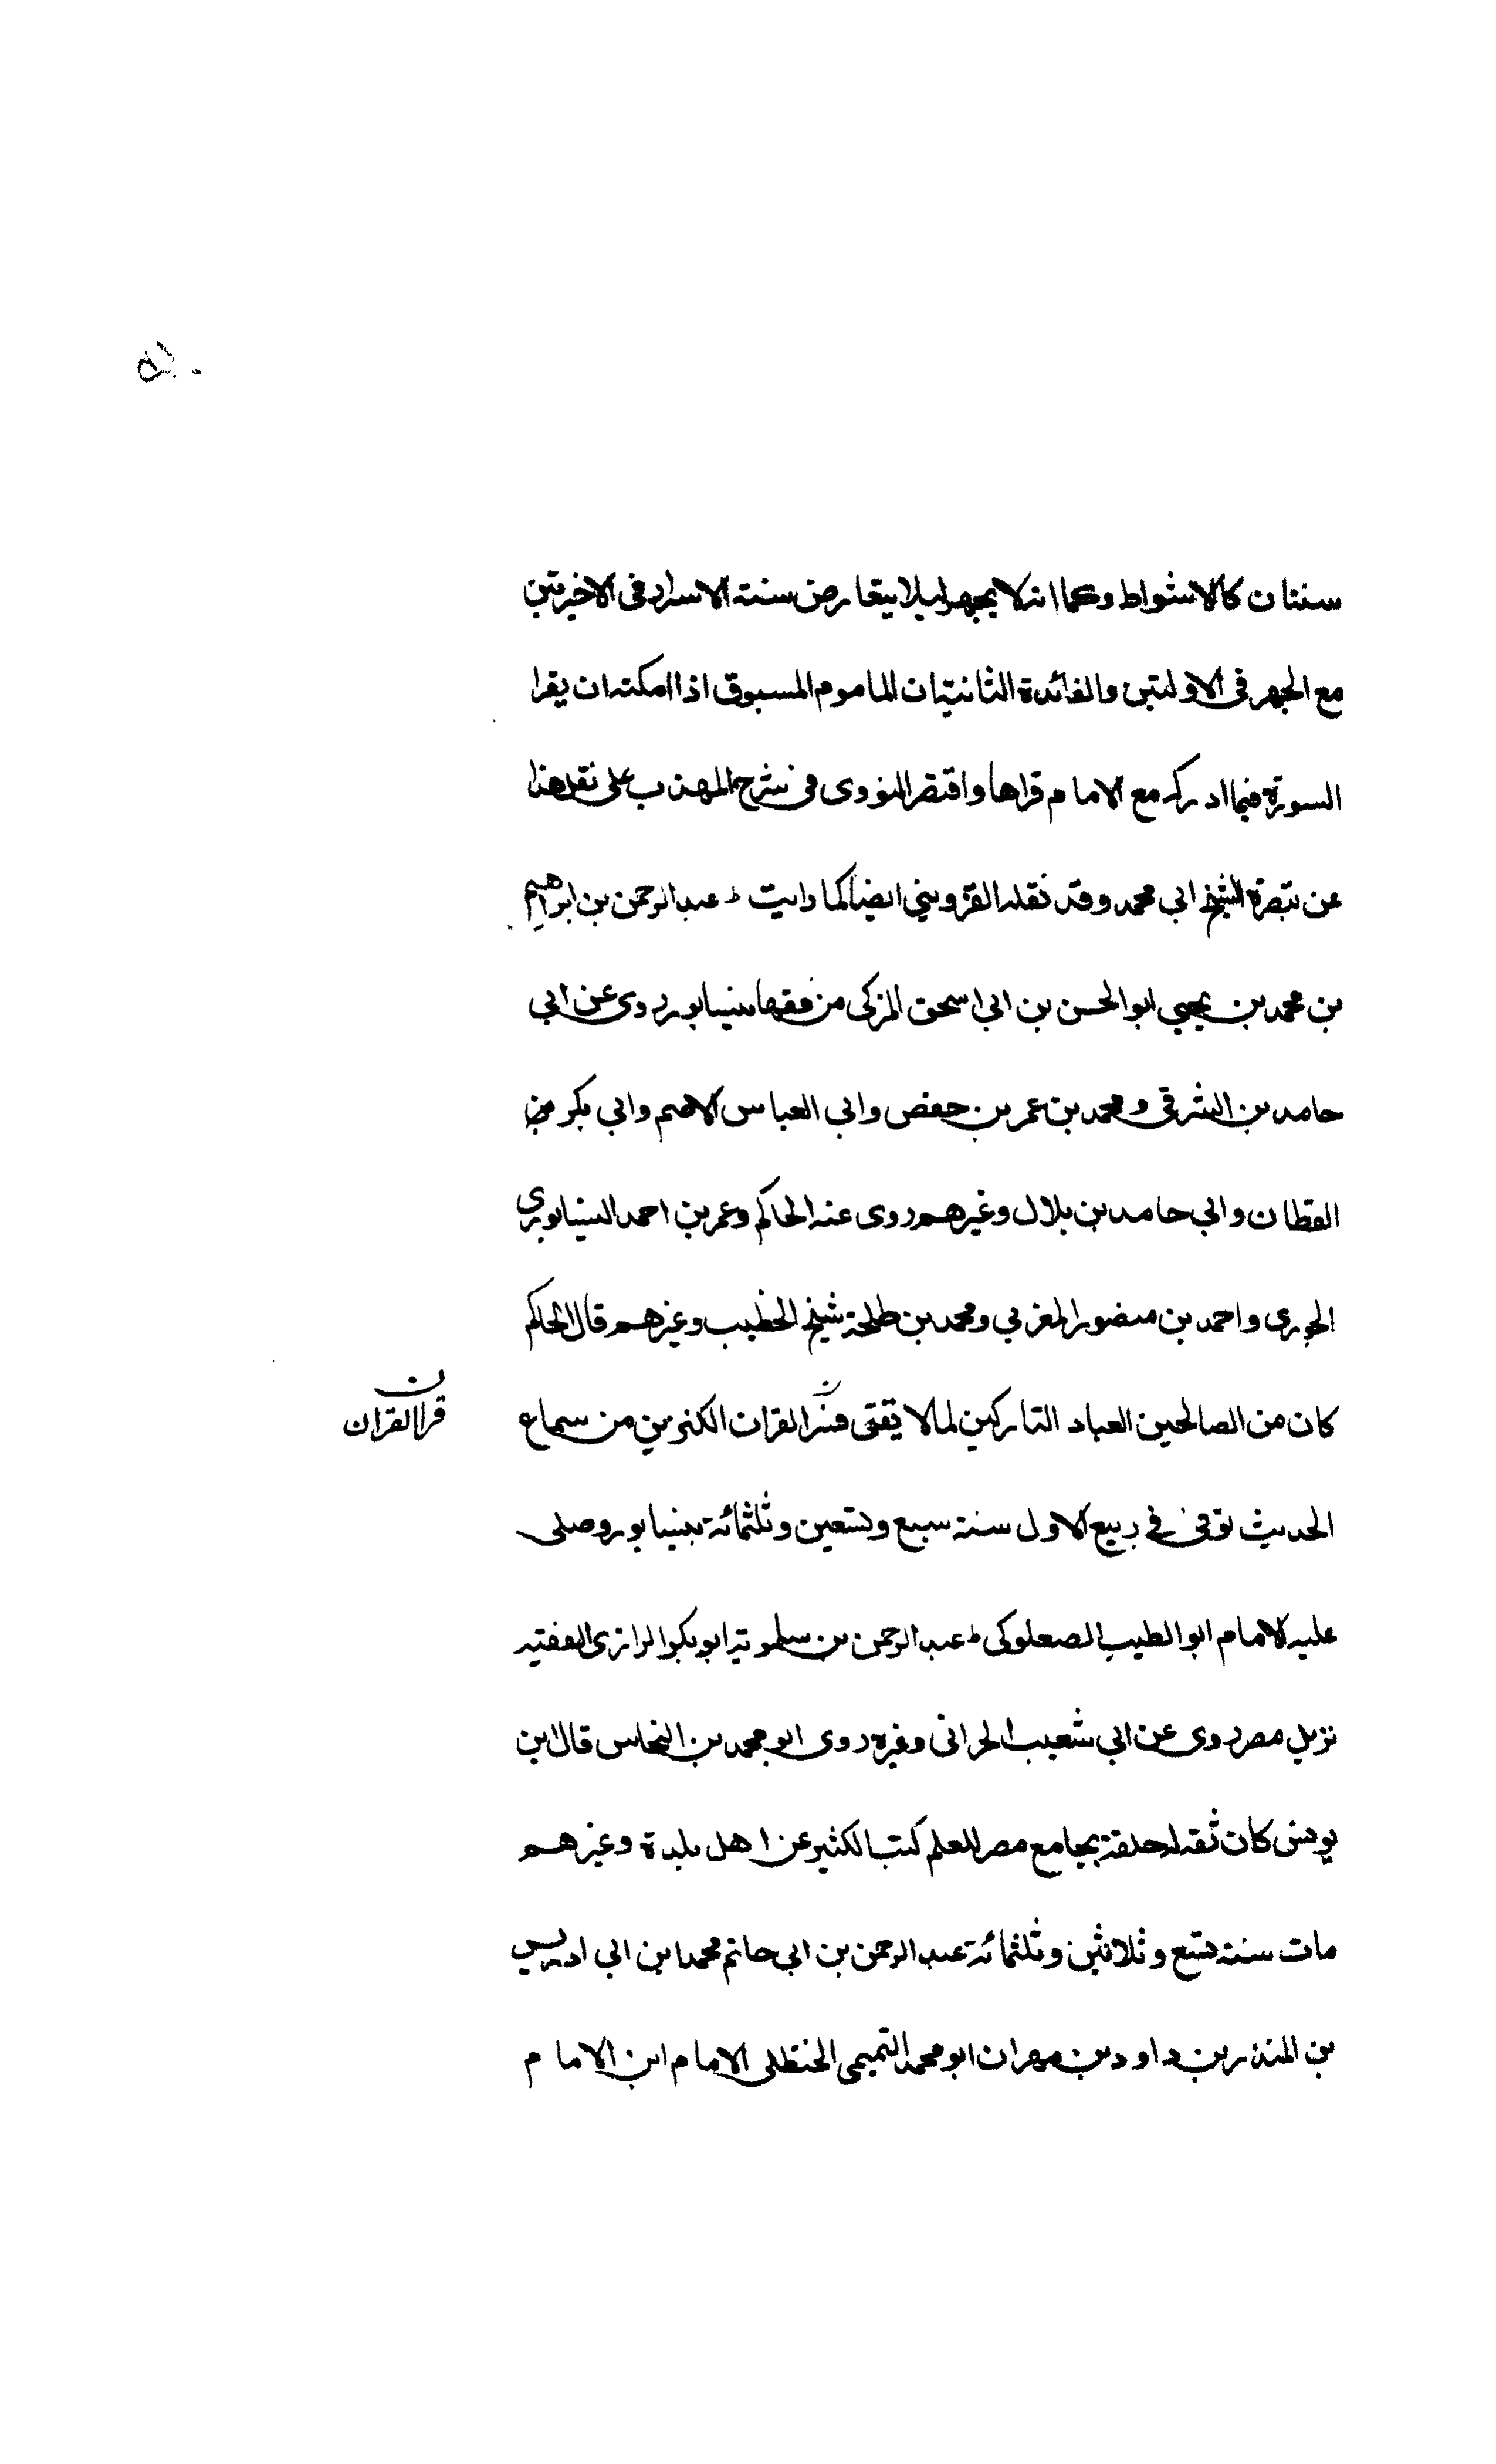 سنتان كالاشواط وكما انه لا يجهر ليلا يتعارض سنة الاسرار في الاخيرتين
مع الجهر في الاولتين والفائدة الثانية ان الماموم المسبوق اذا امكنه ان يقرا
السورة فيما ادركه مع الامام قراها واقتصر النووى فى شرح المهذب على نقل هذا
عن تبصرة الشيخ ابي محمد وقد نقله القزويني ايضا كما رايت عبد الرحمن بن ابراهيم
بن محمد بن يحيي ابو الحسن بن ابي اسحق المزكى من فقها نيسابور روى عن ابي
حامد بن الشرقي ومحمد بن عمر بن حفص وابي العباس الاصم وابي بكر
القطان وابي حامد بن بلال وغيرهم روى عنه الحاكم وعمر بن احمد النيسابورى
الجورى واحمد بن منصور المغربي ومحمد بن طلحة شيخ الخطيب وغيرهم قال الحاكم
كان من الصالحين العباد التاركين لما لا القران من سماع
قرا القران
الحديث توفى في ربيع الاول سنة سبع وتسعين وثلثمائة بنيسابور وصلى
عليه الامام ابو الطيب الصعلوكى عبد الرحمن بن سلموية ابو بكر الرازى الفقيه
نزيل مصر روى عن ابي شعيب الحرانى وغيره روى ابو محمد بن النحاس قال ابن
يونس كان ثقة له حلقة بجامع مصر للعلم كتب الكثير عن اهل بلدة وغيرهم
مات سنة تسع وثلاثين وثلثمائة عبد الرحمن بن ابي حاتم محمد ابن ابي ادريس
بن المنذر بن داود بن مهران ابو محمد التميمى الحنظلى الامام ابن الامام